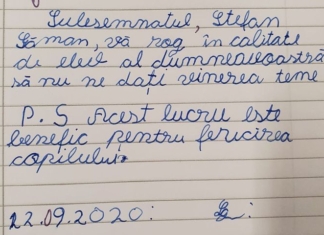 Sulesemnatul, Ștefan
Șăman, vă rog, în calitate
de elev al dumneavoastră
să nu ne dați vinerea teme
P. S Acest lucru este
benefic pentru fericirea
copilului.
22.09.2020: